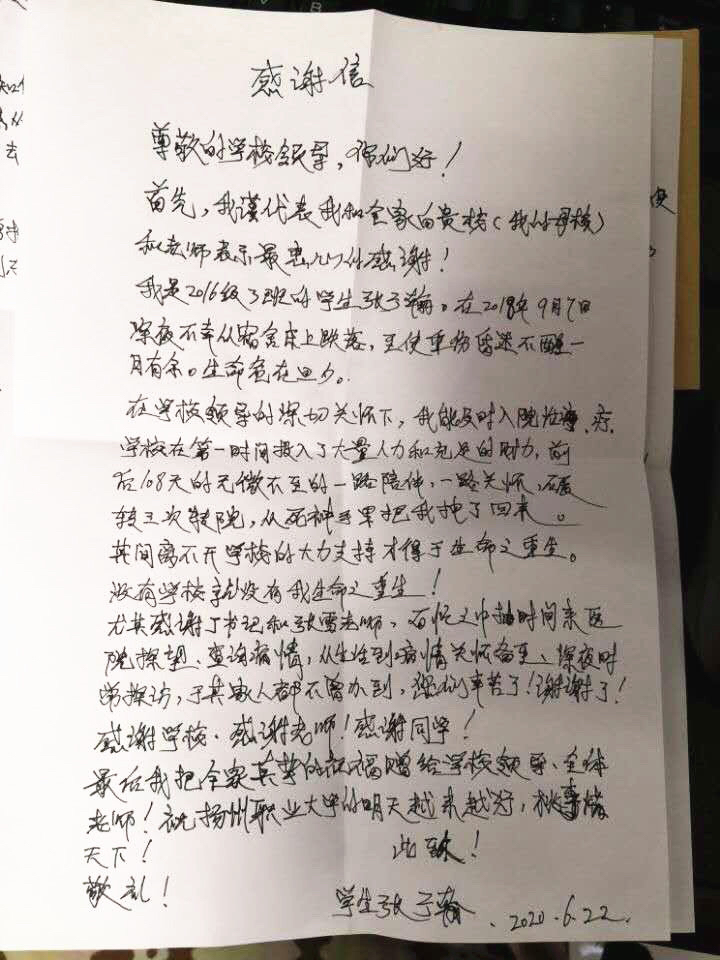 感谢信
尊敬的学校领导，你们好！
首先，我谨代表我和全家向贵校（我的母校）
和老师表示最衷心的感谢！
我是2016级3班的学生张子翰。在2018年9月7日
深夜不幸从宿舍床上跌落，至使重伤昏迷不醒一
月有余。生命危在旦夕。
在学校领导的深切关怀下，我能及时入院治疗.
学校在第一时间投入了大量人力和充足的财力，前
后108天的无微不至的一路陪伴，一路关怀，
转三次转院，从死神手里把我拽了回来。
其间离不开学校的大力支持才得于生命之重生。
没有学校就没有我生命之重生！
尤其感谢丁书记和张雷老师，百忙之中抽时间来医
院探望、查询病情，从生活到病情关怀备至、深夜时
常探访，于其家人都不曾办到，你们辛苦了！谢谢了！
感谢学校、感谢老师！感谢同学！
最后我把全家真挚的祝福赠给学校领导、全体
老师！祝扬州职业大学的明天越来越好，桃李满
天下！
此致！
敬礼！
学生张子翰
2020.6.22.